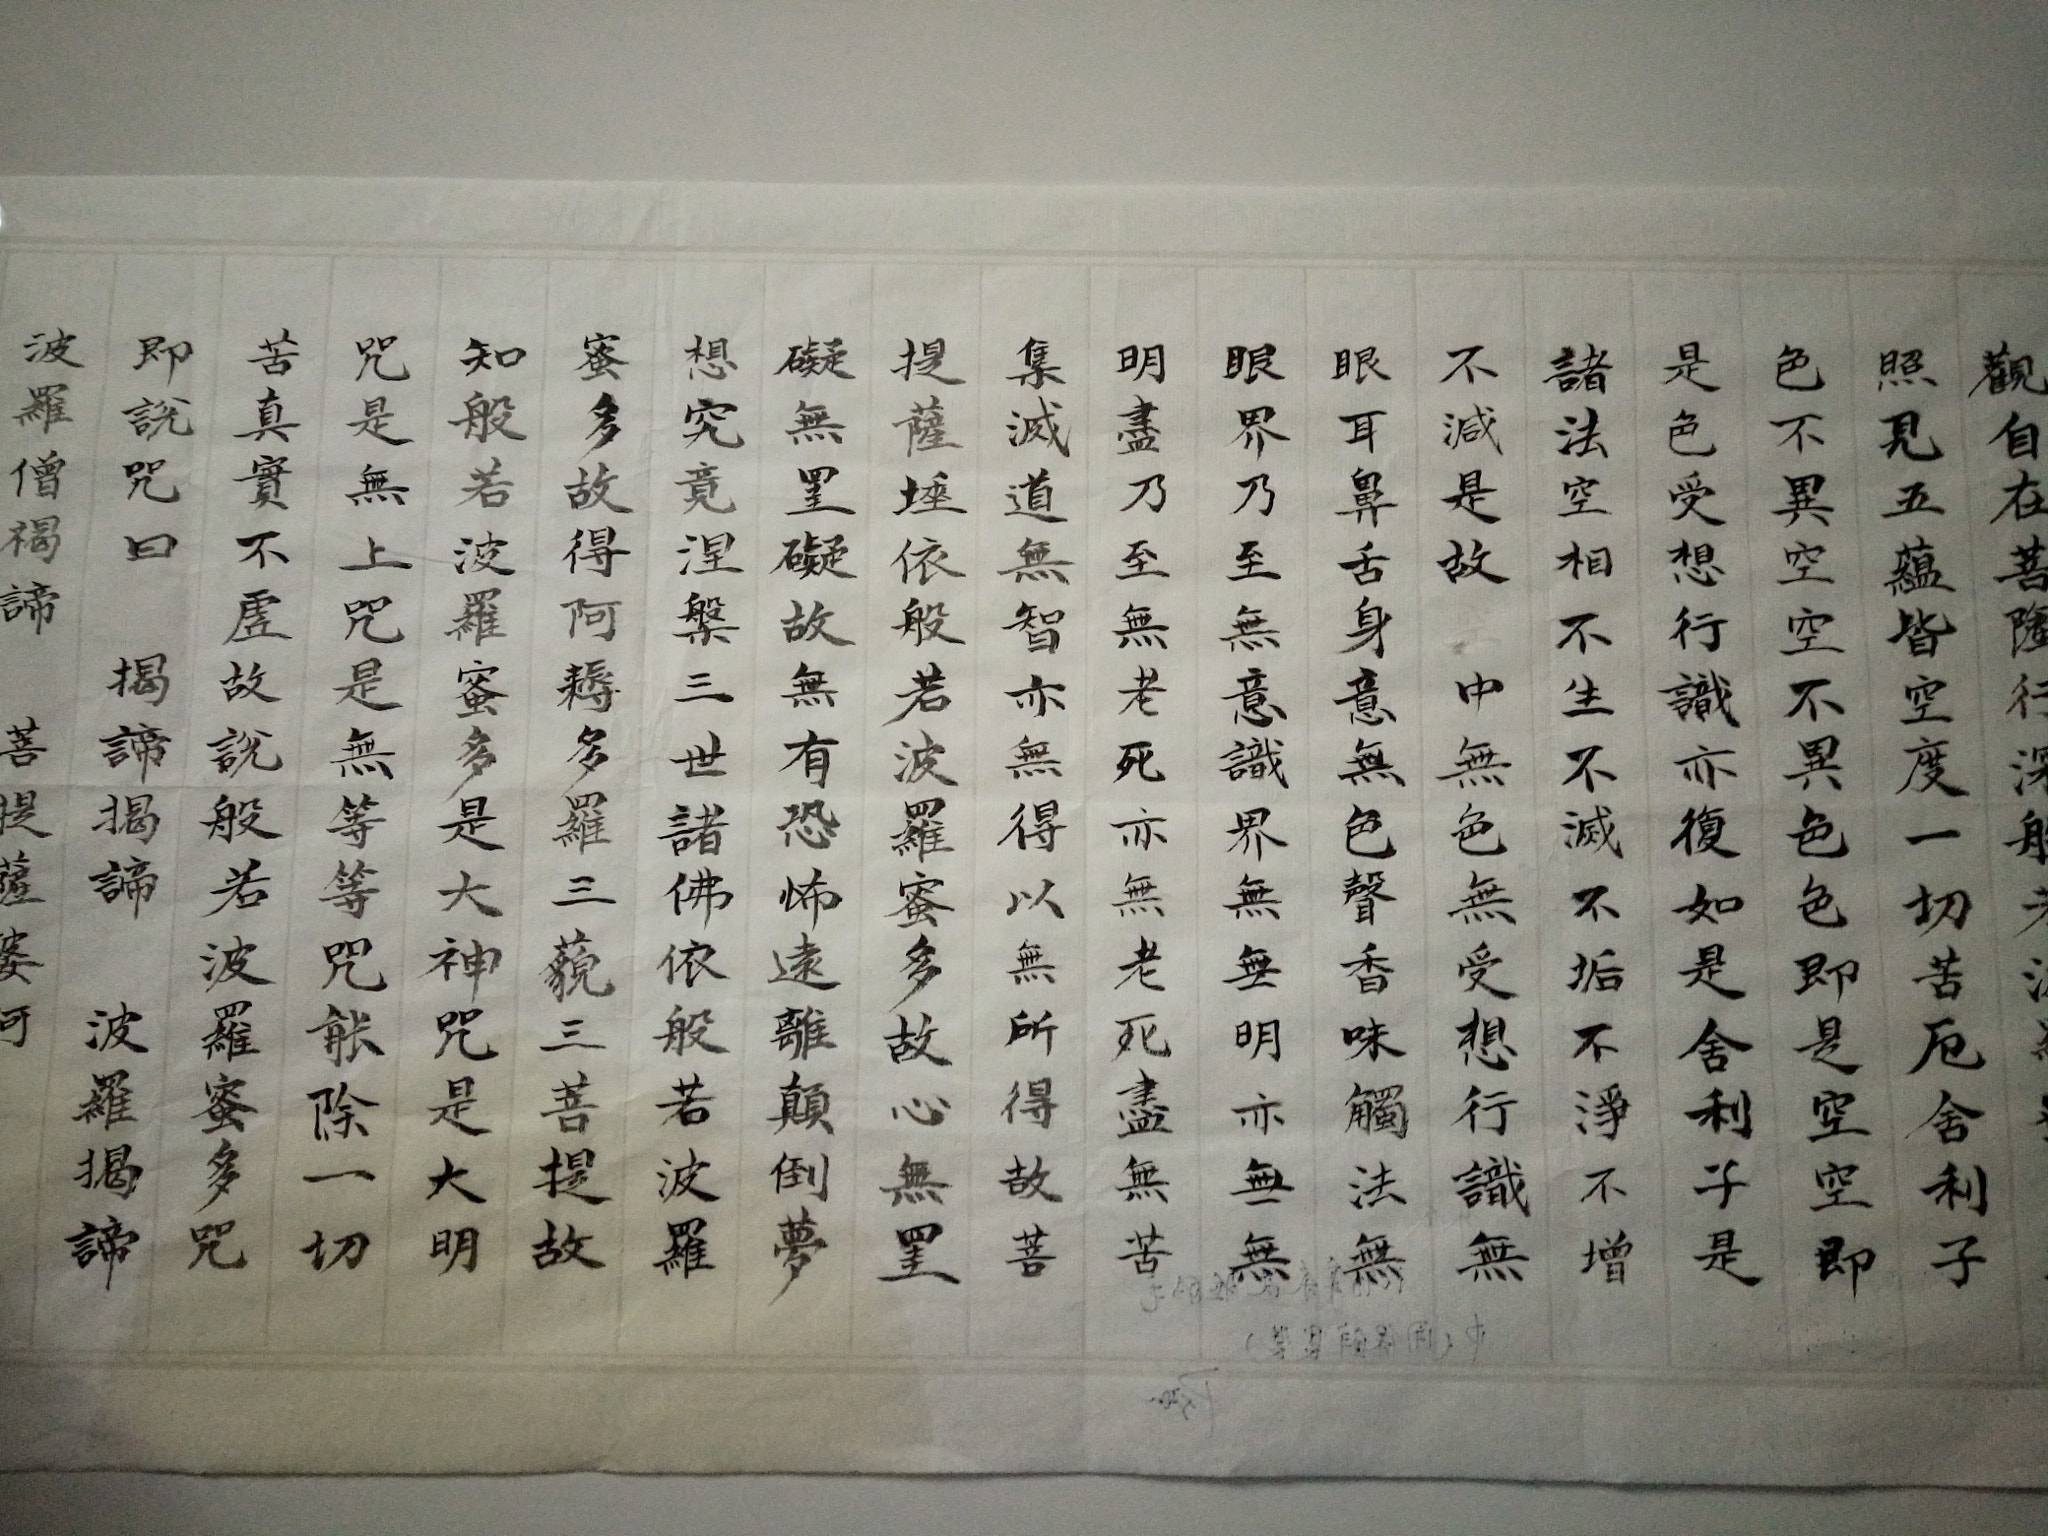 觀自在菩薩行深般若波羅
照見五蘊皆空度一切苦厄舍利子
色不異空空不異色色即是空空即
是色受想行識亦復如是舍利子是
諸法空相不生不滅不垢不淨不增
不減是故 中無色無受想行識無
眼耳鼻舌身意無色聲香味觸法無
眼界乃至無意識界無無明亦無無
明盡乃至無老死亦無老死盡無苦
集滅道無智亦無得以無所得故菩
提薩埵依般若波羅蜜多故心無罣
礙無罣礙故無有恐怖遠離顛倒夢
想究竟涅槃三世諸佛依般若波羅
蜜多故得阿耨多羅三藐三菩提故
知般若波羅蜜多是大神咒是大明
咒是無上咒是無等等咒能除一切
苦真實不虛故說般若波羅蜜多咒
即說咒曰 揭諦揭諦 波羅揭諦
波羅僧褐諦 菩提薩婆訶